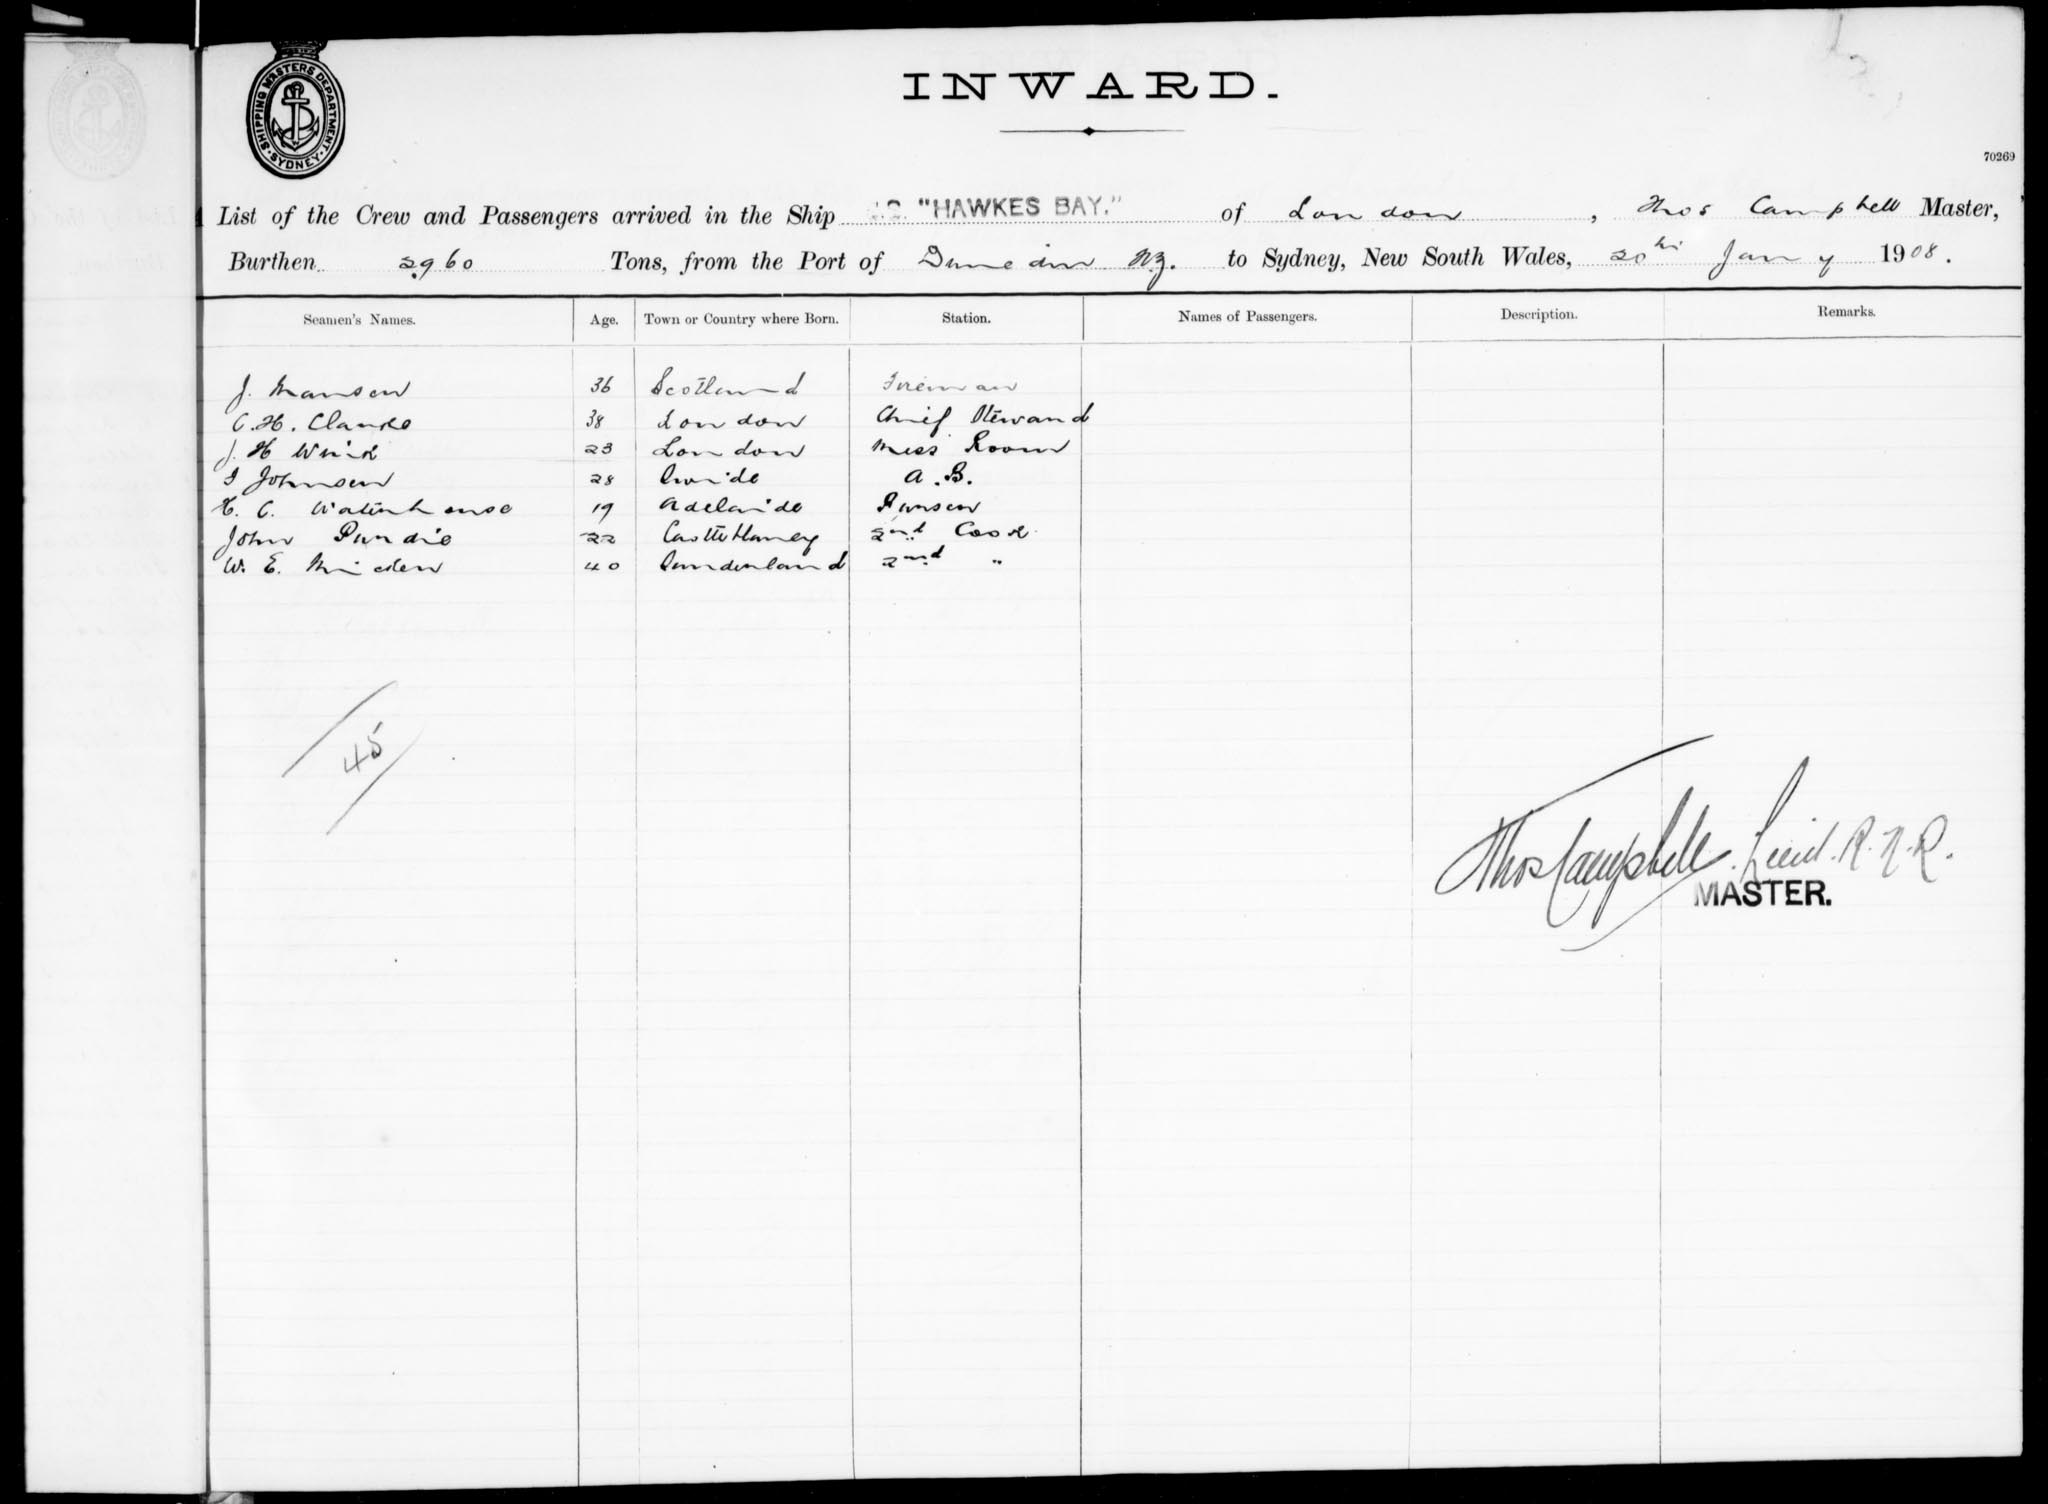 SHIPPING MASTERS DEPARTMENT · SYDNEY ·
INWARD.
70269
List of the Crew and Passengers arrived in the Ship S.S. "HAWKES BAY." of London, Thos Campbell Master,
Burthen 2960 Tons, from the Port of Dunedin N.Z. to Sydney, New South Wales, 20th Jany 1908.
Seamen's Names. Age. Town or Country where Born. Station. Names of Passengers. Description. Remarks.
J. Manson 36 Scotland Fireman
C. H. Clarke 38 London Chief Steward
J. H 23 London Mess Room
Johnsen 28 A. B.
H. C. Waterhouse 19 Adelaide
John Purdie 22 2nd Cook
W. E. 40 Sunderland 2nd "
45
Thos Campbell. Lieut. R. N. R.
MASTER.